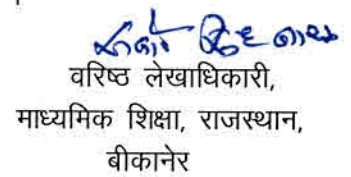 वरिष्ठ लेखाधिकारी,
माध्यमिक शिक्षा, राजस्थान,
बीकानेर